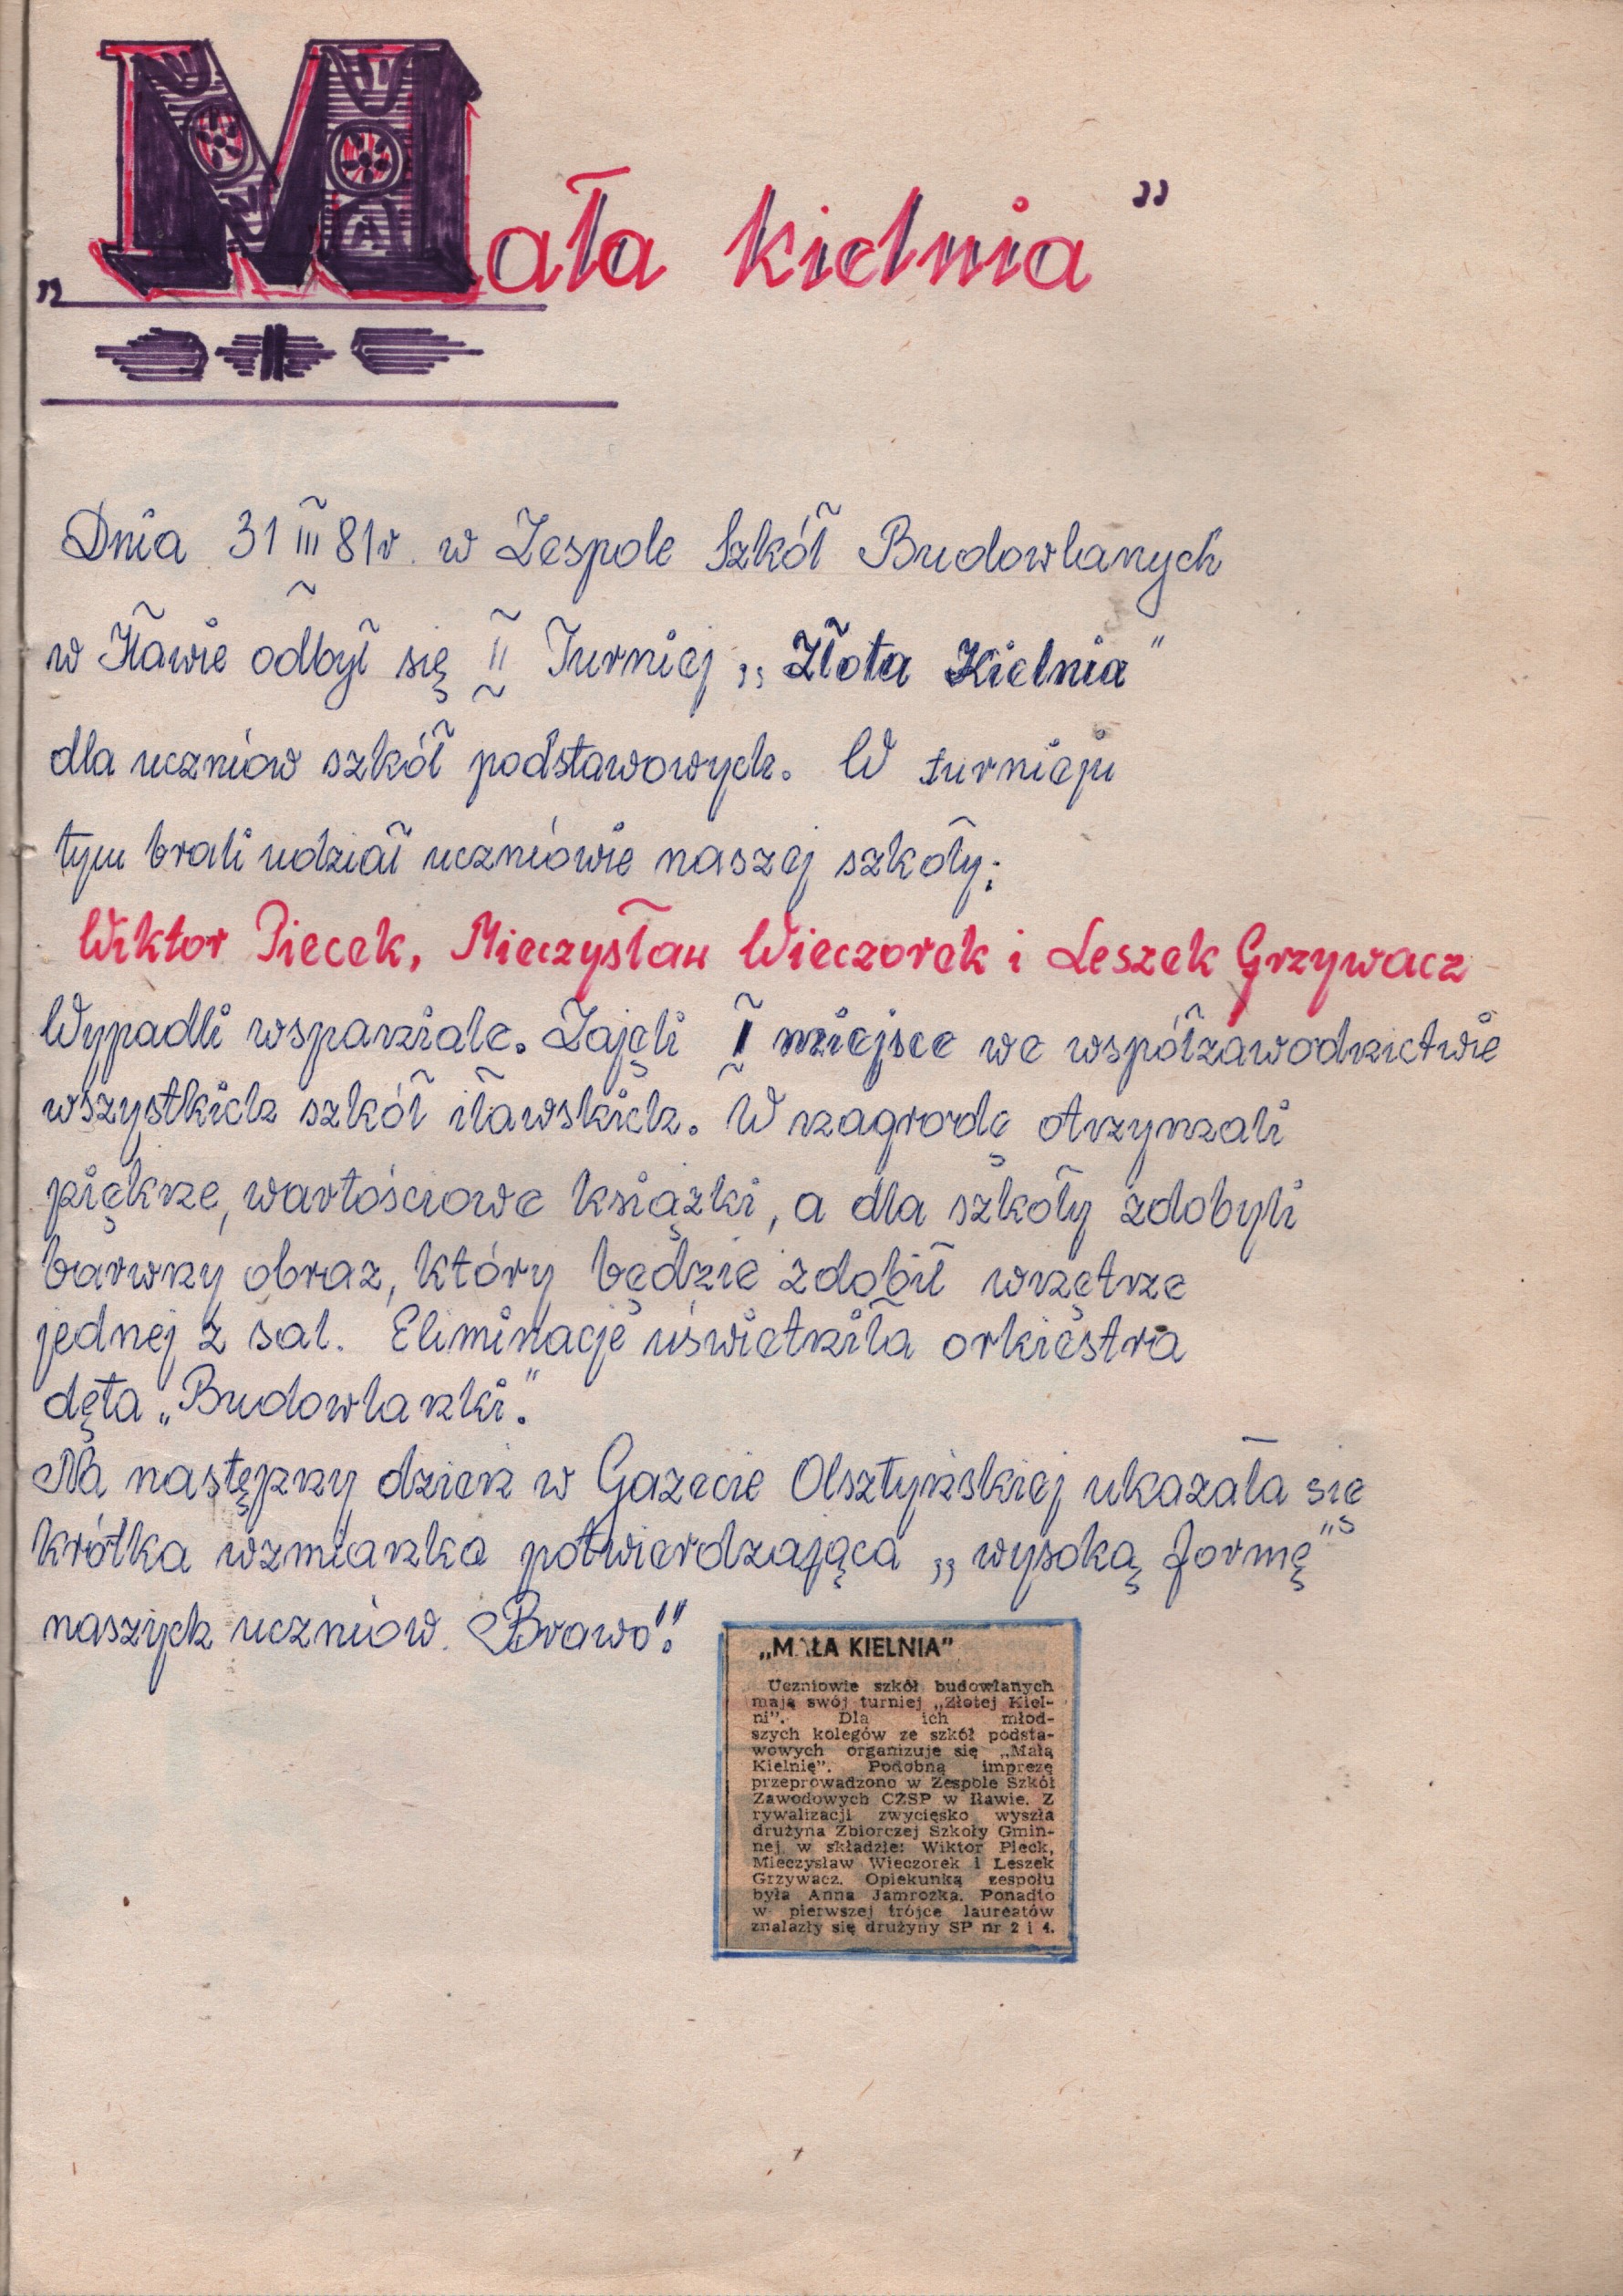 „Mała kielnia”
Dnia 31 III 81r. w Zespole Szkół Budowlanych
w Iławie odbył się II Turniej „Złota Kielnia”
dla uczniów szkół podstawowych. W turnieju
tym brali udział uczniowie naszej szkoły:
Wiktor Piecek, Mieczysław Wieczorek i Leszek Grzywacz
Wypadli wspaniale. Zajęli I miejsce we współzawodnictwie
wszystkich szkół iławskich. W nagrodę otrzymali
piękne, wartościowe książki, a dla szkoły zdobyli
barwny obraz, który będzie zdobił wnętrze
jednej z sal. Eliminacje uświetniła orkiestra
dęta „Budowlanki”.
Na następny dzień w Gazecie Olsztyńskiej ukazała się
krótka wzmianka potwierdzająca „wysoką formę”
naszych uczniów. Brawo!!
„MAŁA KIELNIA”
Uczniowie szkół budowlanych
mają swój turniej „Złotej Kiel-
ni”. Dla ich młod-
szych kolegów ze szkół podsta-
wowych organizuje się „Małą
Kielnię”. Podobną imprezę
przeprowadzono w Zespole Szkół
Zawodowych CZSP w Iławie. Z
rywalizacji zwycięsko wyszła
drużyna Zbiorczej Szkoły Gmin-
nej w składzie: Wiktor Pieck,
Mieczysław Wieczorek i Leszek
Grzywacz. Opiekunką zespołu
była Anna Jamrozka. Ponadto
w pierwszej trójce laureatów
znalazły się drużyny SP nr 2 i 4.